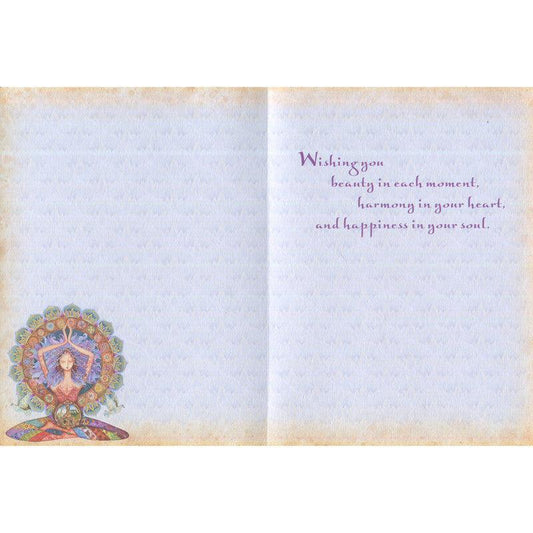 Wishing you
beauty in each moment,
harmony in your heart,
and happiness in your soul.